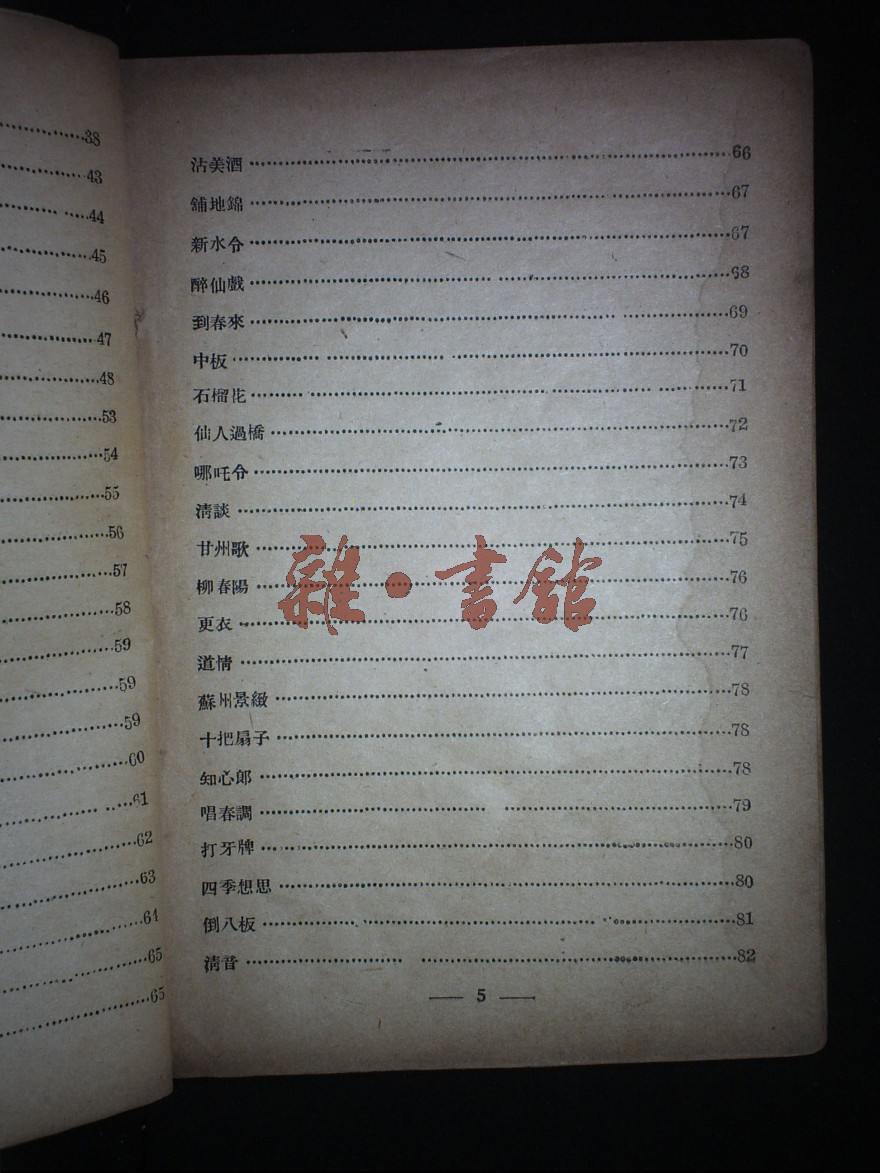 38
43
44
45
46
47
48
53
54
55
56
57
58
59
59
59
60
61
62
63
64
65
65
沾美酒 66
舖地錦 67
新水令 67
醉仙戲 68
到春來 69
中板 70
石榴花 71
仙人過橋 72
哪吒令 73
淸談 74
甘州歌 75
柳春陽 76
更衣 76
道情 77
蘇州景緻 78
十把扇子 78
知心郎 78
唱春調 79
打牙牌 80
四季想思 80
倒八板 81
淸音 82
— 5 —
雜·書館